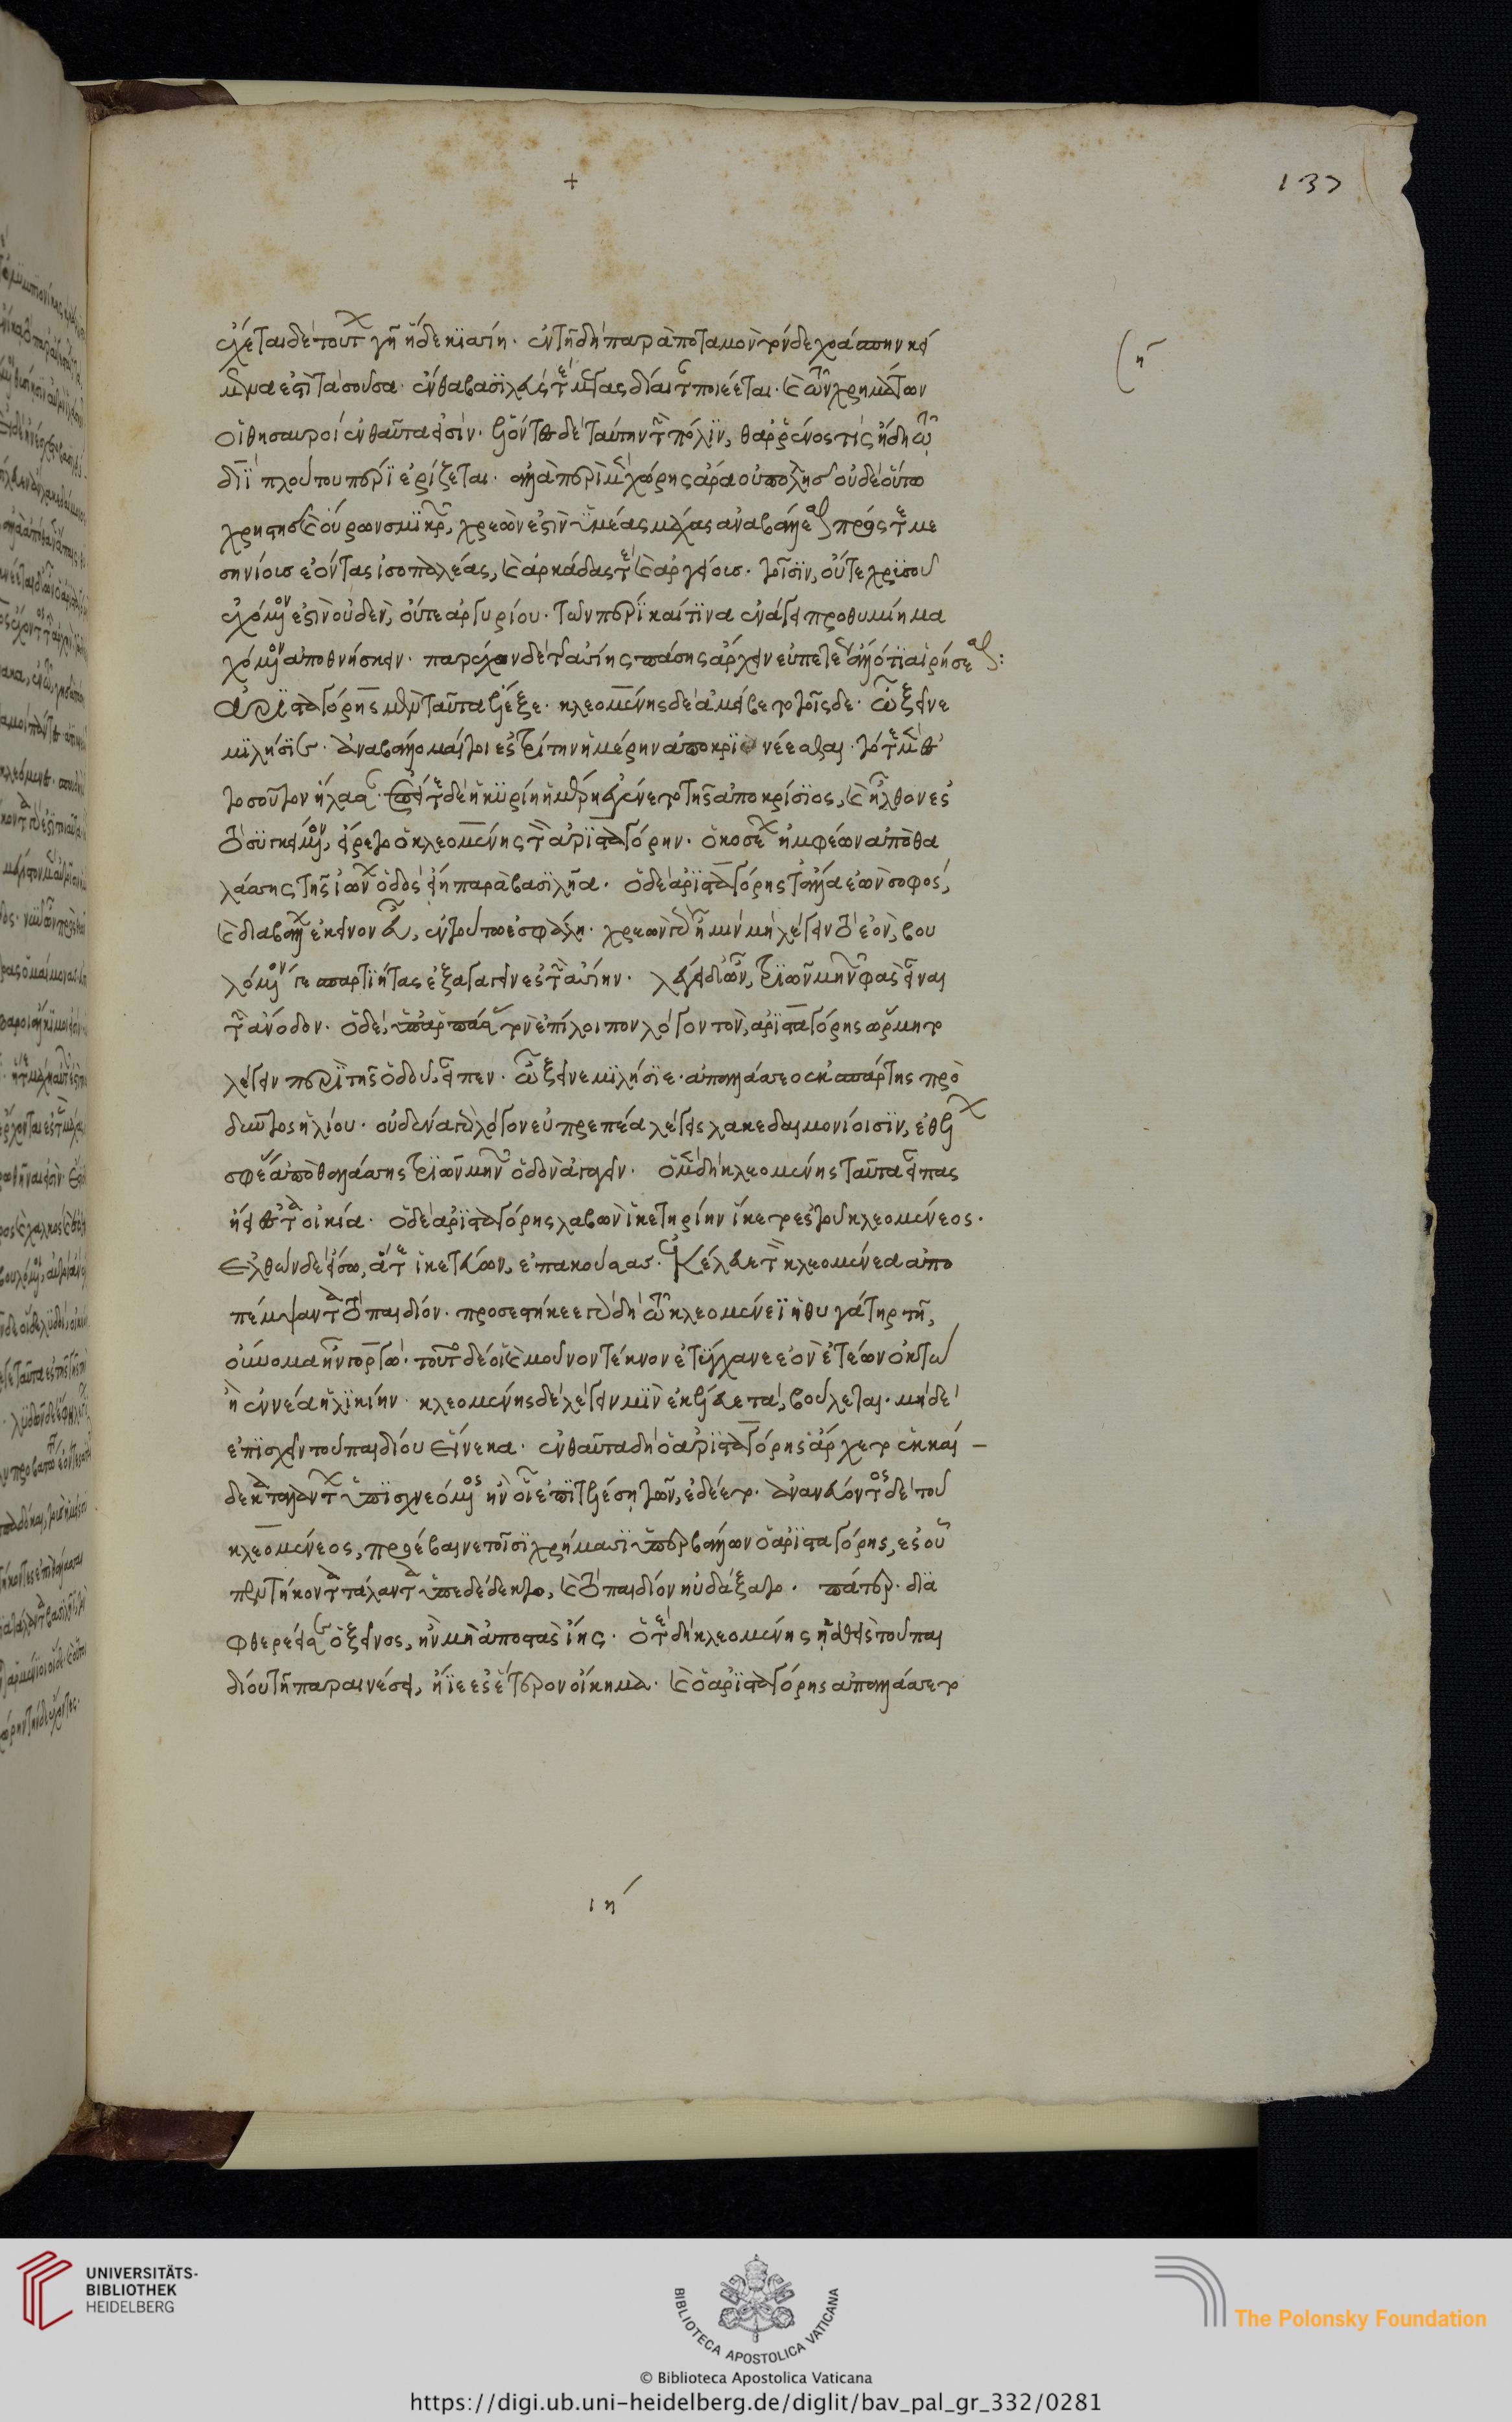 +
137
ἔχεται δὲ τούτων γῆ ἥδε κισσίη· ἐν τῆ δὴ παρὰ ποταμὸν τόνδε χοάσπην κεί
μενα ἐστὶ τὰ σοῦσα· ἔνθα βασιλεύς τε μέγας δίαιταν ποιέεται· καὶ τῶν χρημάτων
οἱ θησαυροὶ ἐνθαῦτα εἰσίν· ἑλόντες δὲ ταύτην τὴν πόλιν, θαρσέοντες ἤδη τῶ
διῒ πλούτου πέρι ἐρίζεται· ἀλλὰ περὶ μὲν χώρης ἄρα οὐ πολλῆς οὐδὲ οὕτω
χρηστῆς καὶ οὔρων σμικρῶν, χρεὼν ἐστὶν ὑμέας μάχας ἀναβάλλεσθαι πρός τε με
σηνίους ἐόντας ἰσοπαλέας, καὶ ἀρκάδας τε καὶ ἀργείους· τοῖσιν, οὔτε χρυσοῦ
ἐχόμενον ἐστὶν οὐδὲν, οὔτε ἀργυρίου· τῶν πέρι καί τινα ἐνάγει προθυμίη μα
χόμενον ἀποθνήσκειν· παρέχων δὲ τῆς ἀσίης πάσης ἄρχειν εὐπετέως ἄλλό τι αἱρήσεσθαι:
ἀρισταγόρης μὲν ταῦτα ἔλεξε· κλεομένης δὲ ἀμείβετο τοῖσδε· ὦ ξεῖνε
μιλήσιε· ἀναβάλλομαί τοι ἐς τρίτην ἡμέρην ἀποκρινέεσθαι· τότε μὲν ἐς
τοσοῦτον ἤλασαν· ἐπεί τε δὲ ἡ κυρίη ἡμέρη ἐγένετο τῆς ἀποκρίσιος, καὶ ἦλθον ἐς
τὸ συγκείμενον, εἴρετο ὁ κλεομένης τὸν ἀρισταγόρην· ὁκοσέων ἡμερέων ἀπὸ θα
λάσσης τῆς ἰώνων ὁδὸς εἴη παρὰ βασιλῆα· ὁ δὲ ἀρισταγόρης τἄλλα ἐὼν σοφός,
καὶ διαβάλλων ἐκεῖνον εὖ, ἐν τούτω ἐσφάλη· χρεὼν γάρ μιν μὴ λέγειν τὸ ἐὸν, βου
λόμενόν γε σπαρτιήτας ἐξαγαγεῖν ἐς τὴν ἀσίην· λέγει δ' ὦν, τριῶν μηνῶν φὰς εἶναι
τὴν ἄνοδον· ὁ δὲ, ὑπαρπάσας τὸν ἐπίλοιπον λόγον τὸν, ἀρισταγόρης ὥρμητο
λέγειν περὶ τῆς ὁδοῦ, εἶπεν· ὦ ξεῖνε μιλήσιε· ἀπαλλάσσεο ἐκ σπάρτης πρὸ
δύντος ἡλίου· οὐδένα γὰρ λόγον εὐπρεπέα λέγεις λακεδαιμονίοισιν, ἐθέλων
σφέας ἀπὸ θαλάσσης τριῶν μηνῶν ὁδὸν ἀγαγεῖν· ὁ μὲν δὴ κλεομένης ταῦτα εἴπας
ἤει ἐς τὰ οἰκία· ὁ δὲ ἀρισταγόρης λαβὼν ἱκετηρίην ἵκετο ἐς τοῦ κλεομένεος·
ἐλθὼν δὲ εἴσω, ἅτε ἱκετεύων, ἐπακοῦσαι ἐκέλευε τὸν κλεομένεα ἀπο
πέμψαντα τὸ παιδίον· προσεστήκεε γὰρ δὴ τῶ κλεομένεϊ ἡ θυγάτηρ τῆ,
οὔνομα ἦν γοργώ· τοῦτο δέ οἱ καὶ μοῦνον τέκνον ἐτύγχανε ἐὸν ἐτέων ὀκτὼ
ἢ ἐννέα ἡλικίην· κλεομένης δὲ λέγειν μιν ἐκέλευε τὰ, βούλεται· μὴ δὲ
ἐπισχεῖν τοῦ παιδίου εἵνεκα· ἐνθαῦτα δὴ ὁ ἀρισταγόρης ἄρχετο ἐκ καί –
δεκα ταλάντων ὑπισχνεόμενος ἢν οἱ ἐπιτελέση τῶν, ἐδέετο· ἀνανεύοντος δὲ τοῦ
κλεομένεος, προέβαινε τοῖσι χρήμασι ὑπερβάλλων ὁ ἀρισταγόρης, ἐς οὗ
πεντήκοντα τάλαντα ὑπεδέδεκτο, καὶ τὸ παιδίον ηὐδάξατο· πάτερ· δια
φθερέει σε ὁ ξεῖνος, ἢν μὴ ἀποστὰς ἴης· ὅ τε δὴ κλεομένης ἡσθεὶς τοῦ παι
δίου τῆ παραινέσει, ἤϊε ἐς ἕτερον οἴκημα· καὶ ὁ ἀρισταγόρης ἀπαλλάσσετο
ιη´
UNIVERSITÄTS-
BIBLIOTHEK
HEIDELBERG
BIBLIOTECA APOSTOLICA VATICANA
The Polonsky Foundation
© Biblioteca Apostolica Vaticana
https://digi.ub.uni-heidelberg.de/diglit/bav_pal_gr_332/0281